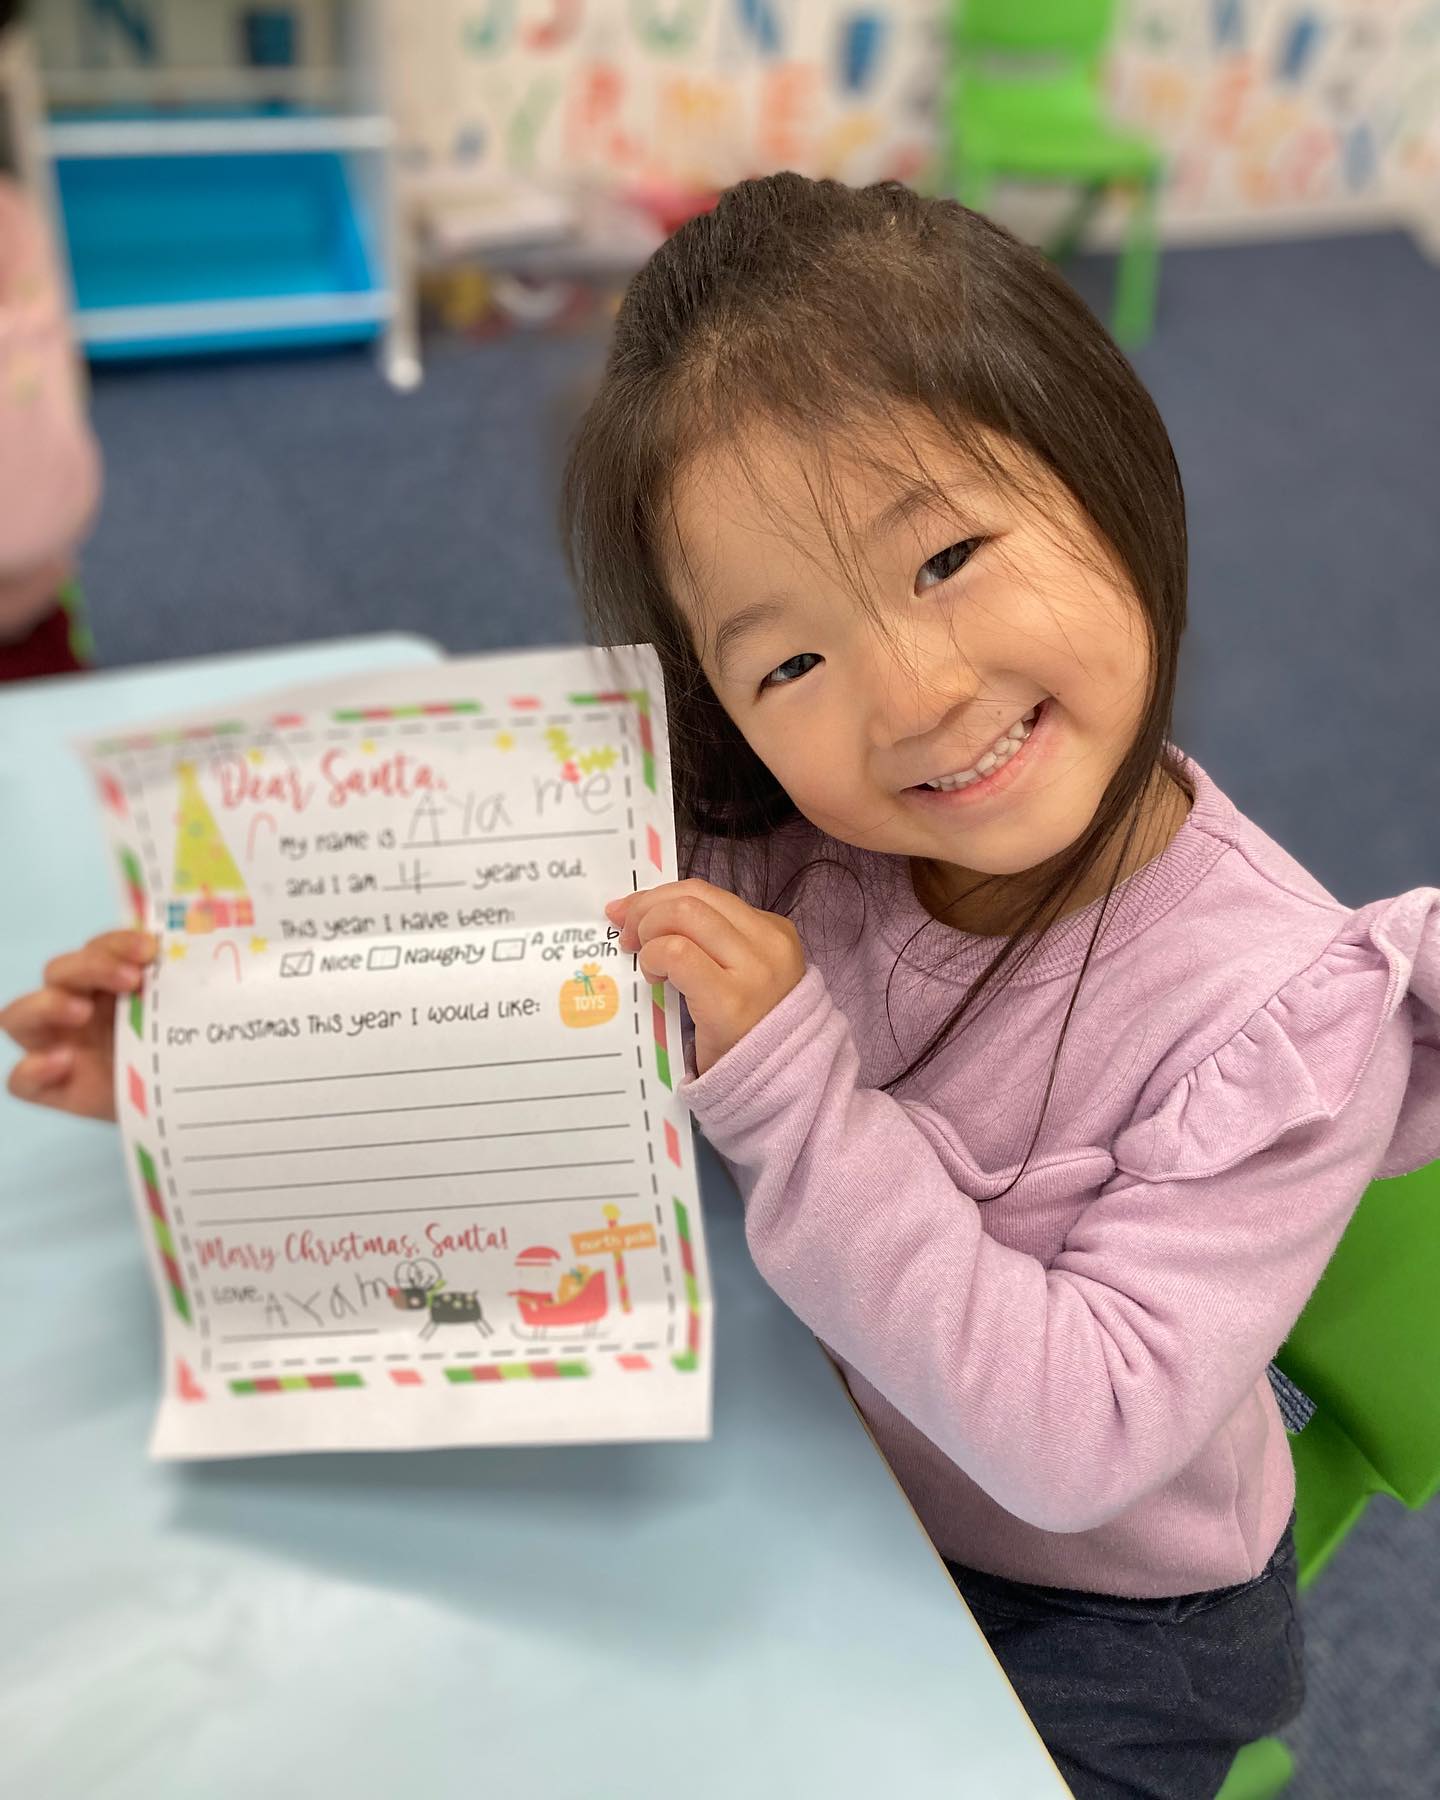 Dear Santa,
my name is Ayame
and I am 4 years old.
This year I have been:
Nice Naughty A little b of both
TOYS
For Christmas this year I would like:
Merry Christmas, Santa!
north pole
Love, Ayam